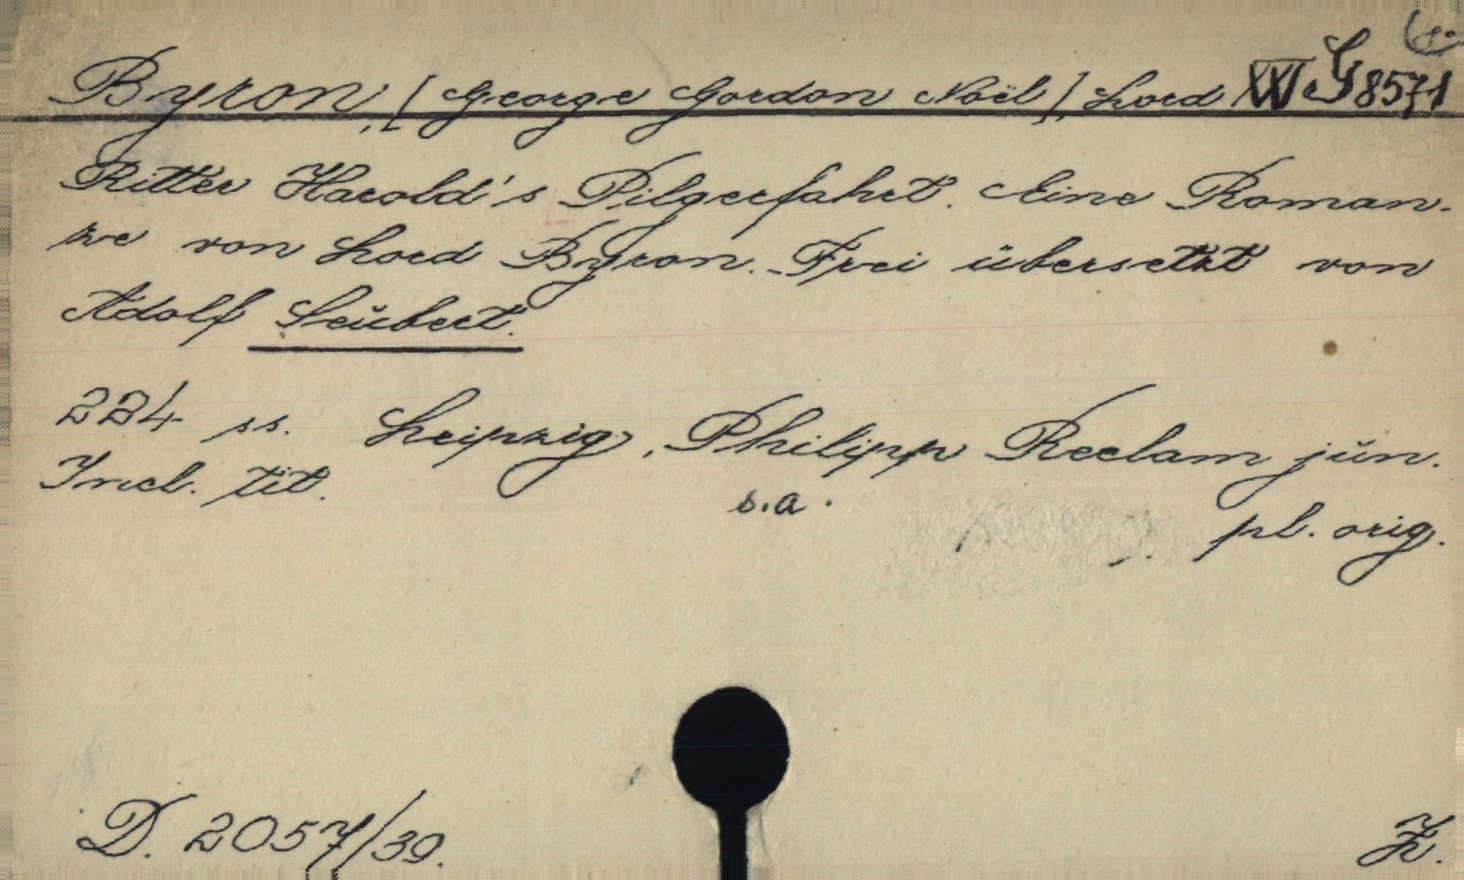 Byron, [George Gordon Noël], Lord XVI G 8571
Ritter Harold's Pilgerfahrt. Eine Roman-
ze von Lord Byron. Frei übersetzt von
Adolf Seubert.
224 ss. Leipzig, Philipp Reclam jŭn.
Incl. tit. s.a. pl. orig.
D. 2057/39. Z.